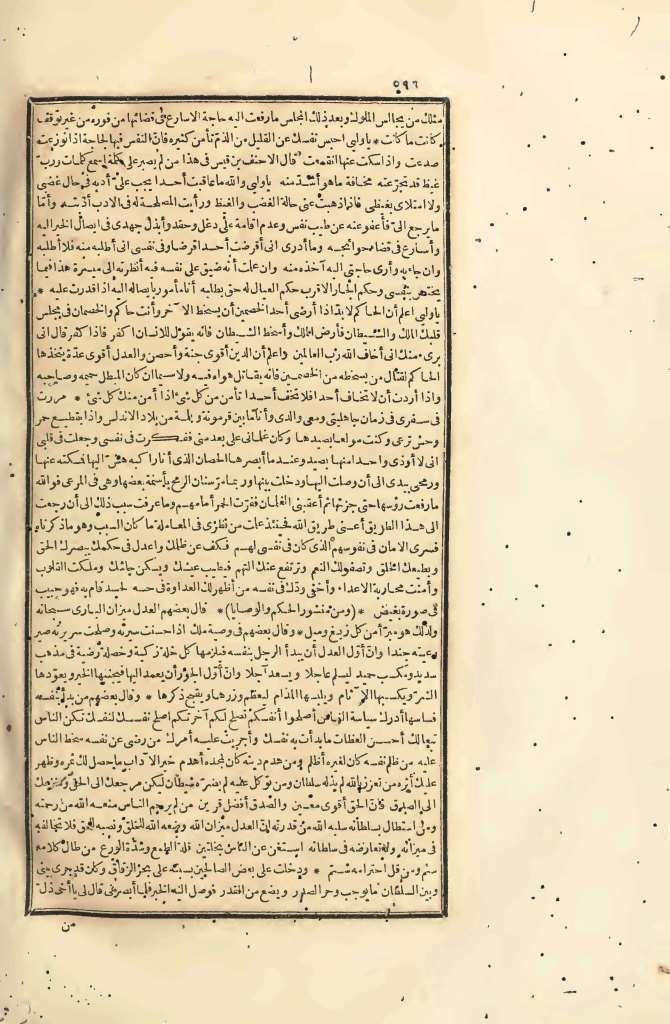 ٥٩٦
مثلك من يجالس الملوك وبعد ذلك المجلس ما رفعت اليه حاجة الا سارع في قضائها من فوره من غير توقف
كانت ما كانت * يا وليي احبس نفسك عن القليل من الذم تأمن كثيره فان النفس فيها لجاجة اذا نوزعت
صدعت واذا سكت عنها انقمعت قال الاحنف بن قيس في هذا من لم يصبر على كلمة اسمع كلمات ورب
غيظ قد تجرعته مخافة ما هو أشد منه يا وليي والله ما عاقبت أحدا يجب على أدبه في حال غضبي
ولا امتلأي بغيظي فاذا ذهبت عني حالة الغضب والغيظ ورأيت المصلحة له في الادب أدبته وأما
ما يرجع الىّ فأعفو عنه عن طيب نفس وعدم اقامة على دغل وحقد وأبذل جهدي في ايصال الخير اليه
وأسارع في قضاء حوائجه وما أدري اني أقرضت أحدا قرضا وفي نفسي اني أطلبه منه فلا أطلبه
وان جاء به وأرى حاجتي اليه آخذه منه وان علمت أنه ضيق على نفسه فيه أنظرته الى ميسرة هذا فيما
يختص بنفسي وحكم الجار الاقرب حكم العيال له حق يطالبه أنا مأمور بايصاله اليه اذا قدرت عليه *
يا وليي اعلم أن الحاكم لا بد اذا أرضى أحد الخصمين أن يسخط الآخر وأنت حاكم والخصمان في مجلس
قلبك الملك والشيطان فأرض الملك وأسخط الشيطان فانه يقول للانسان اكفر فاذا كفر قال اني
بريء منك اني أخاف الله رب العالمين واعلم أن الدين أقوى جنة وأحصن والعدل أقوى عدة يتخذها
الحاكم لقتال من يسخطه من الخصمين فانه يقاتل هواه فيه ولا سيما ان كان المبطل حميمه وصاحبه
واذا أردت أن لا تخاف أحدا فلا تخف أحدا تأمن من كل شئ اذا أمن منك كل شئ * مررت
في سفري في زمان جاهليتي ومعي والدي وأنا ما بين قرمونة وبلمة من بلاد الاندلس واذا بقطيع حمر
وحش ترعى وكنت مولعا بصيدها وكان غلماني على بعد مني ففكرت في نفسي وجعلت في قلبي
اني لا أوذي واحدا منها بصيد وعندما أبصرها الحصان الذي أنا راكبه هش اليها فسكته عنها
ورمحي بيدي الى أن وصلت اليها ودخلت بينها وربما مر سنان الرمح بأسنمة بعضها وهي في المرعى فوالله
ما رفعت رؤسها حتى جزتها ثم أعقبني الغلمان ففرت الحمر أمامهم وما عرفت سبب ذلك الى أن رجعت
الى هذا الطريق أعني طريق الله فحينئذ علمت من نظري في المعاملة ما كان السبب وهو ما ذكرناه
فسرى الامان في نفوسهم الذي كان في نفسي لهم فكف عن ظلمك واعدل في حكمك ينصرك الحق
ويطيعك الخلق وتصفو لك النعم وترتفع عنك التهم فيطيب عيشك ويسكن جاشك وملكت القلوب
وأمنت محاربة الاعداء وأخفى ودك في نفسه من أظهر لك العداوة في حسه لحسد قام به فهو حبيب
في صورة بغيض * (ومن منشور الحكم والوصايا) * قال بعضهم العدل ميزان الباري سبحانه
ولذلك هو مبرأ من كل زيغ وميل * وقال بعضهم في وصية ملك اذا حسنت سيرته وصلحت سريرته صير
رعيته جندا وان أول العدل أن يبدأ الرجل بنفسه فيلزمها كل خلة زكية وخصلة رضية في مذهب
سديد ومكسب حميد ليسلم عاجلا ويسعد آجلا وان أول الجور أن يعمد اليها فيجنبها الخير ويعودها
الشر ويكسبها الآثام ويلبسها المذام ليعظم وزرها ويقبح ذكرها * وقال بعضهم من بدأ بنفسه
فساسها أدرك سياسة الناس أصلحوا أنفسكم تصلح لكم آخرتكم اصلح نفسك لنفسك تكن الناس
تبعا لك أحسن العظات ما بدأت به نفسك وأجريت عليه أمرك من رضي عن نفسه سخط الناس
عليه من ظلم نفسه كان لغيره أظلم ومن هدم دينه كان لمجده أهدم خير الآداب ما حصل لك ثمره وظهر
عليك أثره من تعزز بالله لم يذله سلطان ومن توكل عليه لم يضره شيطان ليكن مرجعك الى الحق ومنزعك
الى الصدق فان الحق أقوى معين والصدق أفضل قرين من لم يرحم الناس منعه الله من رحمته
ومن استطال بسلطانه سلبه الله من قدرته ان العدل ميزان الله وضعه الله للخلق ونصبه للحق فلا تخالفه
في ميزانه ولا تعارضه في سلطانه استغن عن الناس بخلتين قلة الطمع وشدة الورع من طال كلامه
سئم ومن قل احترامه شتم * ودخلت على بعض الصالحين بسبتة على بحر الزقاق وكان قد جرى بيني
وبين السلطان ما يوجب وحر الصدر ويضع من القدر فوصل اليه الخبر فلما أبصرني قال لي يا أخي ذل
من